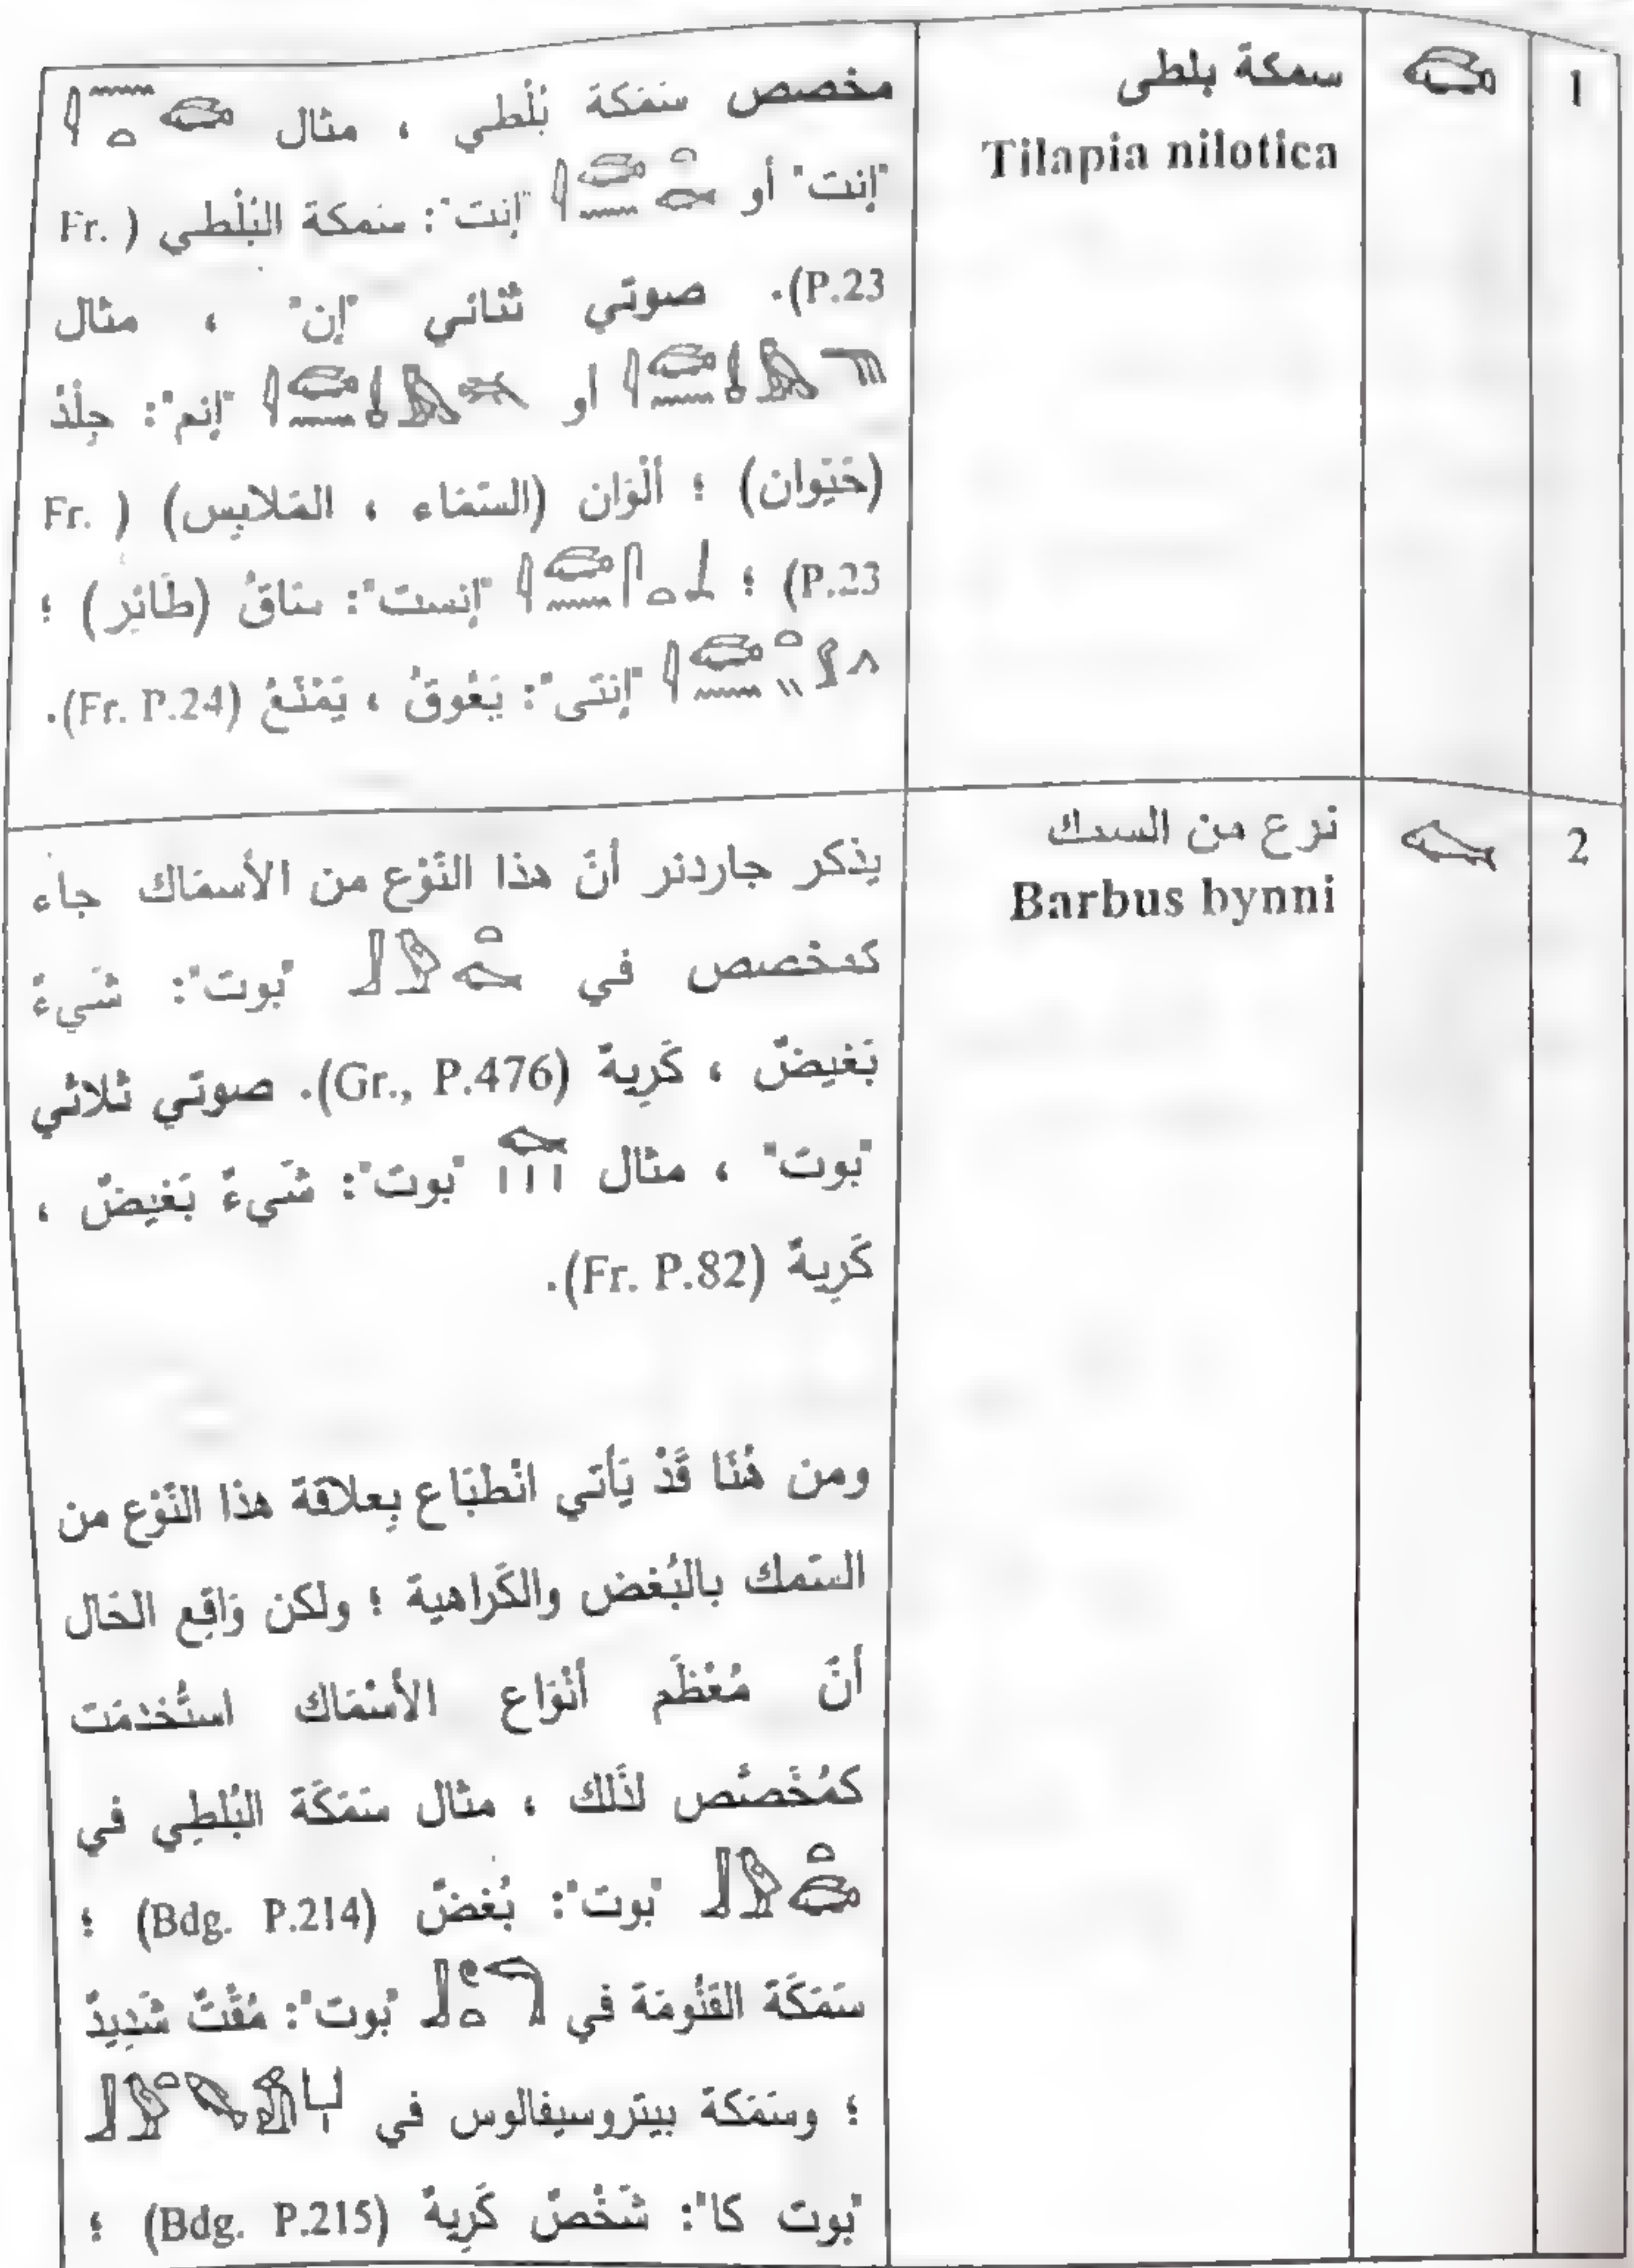 1
سمكة بلطى
Tilapia nilotica
مخصص سَمَكة بُلْطي ، مثال 𓇋𓈖𓏏𓆛
"إنت" أو 𓇋𓆛𓈖𓏏𓆟 "إنت": سَمكة البُلْطي (Fr.
P.23). صوتي ثنائي "إن" ، مثال
𓇋𓆛𓈖𓄪𓅓 أو 𓇋𓆛𓈖𓄪𓅓𓄛 "إنم": جِلْدُ
(حَيَوان) ؛ ألْوَان (السَّمَاء ، المَلابِس) (Fr.
P.23) ؛ 𓇋𓆛𓈖𓋴𓏏𓃀 "إنست": سَاقُ (طَائِر) ؛
𓇋𓆛𓈖𓏏𓏭𓂻 "إنتى": يَعُوقُ ، يَمْنَعُ (Fr. P.24).
2
نوع من السمك
Barbus bynni
يذكر جاردنر أنَّ هذا النَّوْع من الأسمَاك جاء
كمخصص في 𓃀𓅱𓏏𓆟 "بوت": شَيءٌ
بَغيضٌ ، كَرِيةٌ (Gr., P.476). صوتي ثلاثي
"بوت" ، مثال 𓆟𓏥 "بوت": شَيءٌ بَغيضٌ ،
كَرِيةٌ (Fr. P.82).
ومن هُنَا قَدْ يَأتي انْطبَاع بِعلاقة هذا النَّوْع من
السَّمك بالبُغض والكَراهية ؛ ولكن وَاقِع الحَال
أنَّ مُعْظَم أنْوَاع الأسْمَاك استُخْدَمَت
كمُخَصَّص لذَلك ، مثال سَمَكَة البُلطِي في
𓃀𓅱𓏏𓆛 "بوت": بُغضٌ (Bdg. P.214) ؛
سَمَكَة القَنُّومَة في 𓃀𓏲𓏏𓆞 "بُوت": مُقْتٌ شَدِيدٌ
؛ وسَمَكة بيتروسيفالوس في 𓃀𓅱𓏏𓆝𓀀𓂓𓏤
"بُوت كا": شَخْصٌ كَرِيةٌ (Bdg. P.215) ؛